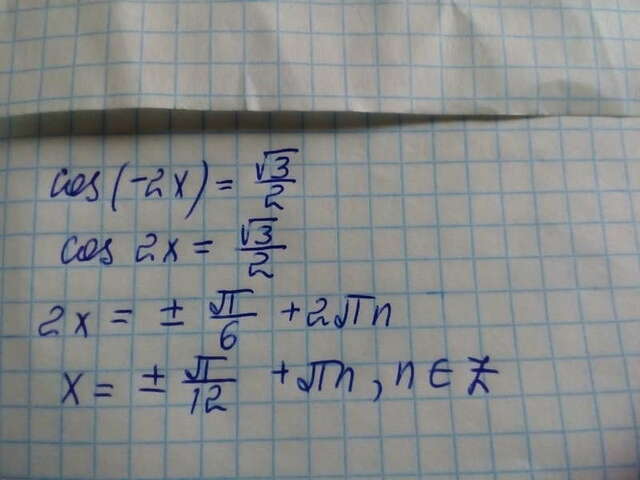 cos(-2x) = √3/2
cos 2x = √3/2
2x = ± π/6 + 2πn
x = ± π/12 + πn, n ∈ Z